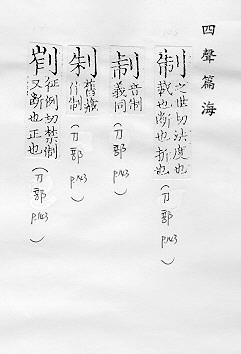 四聲篇海
制
之世切法度也
裁也断也折也
(刀部 P.143)
音制
義同
(刀部 P.143)
舊藏
作制
(刀部 P.143)
征例切禁制
又断也正也
(刀部 P.143)